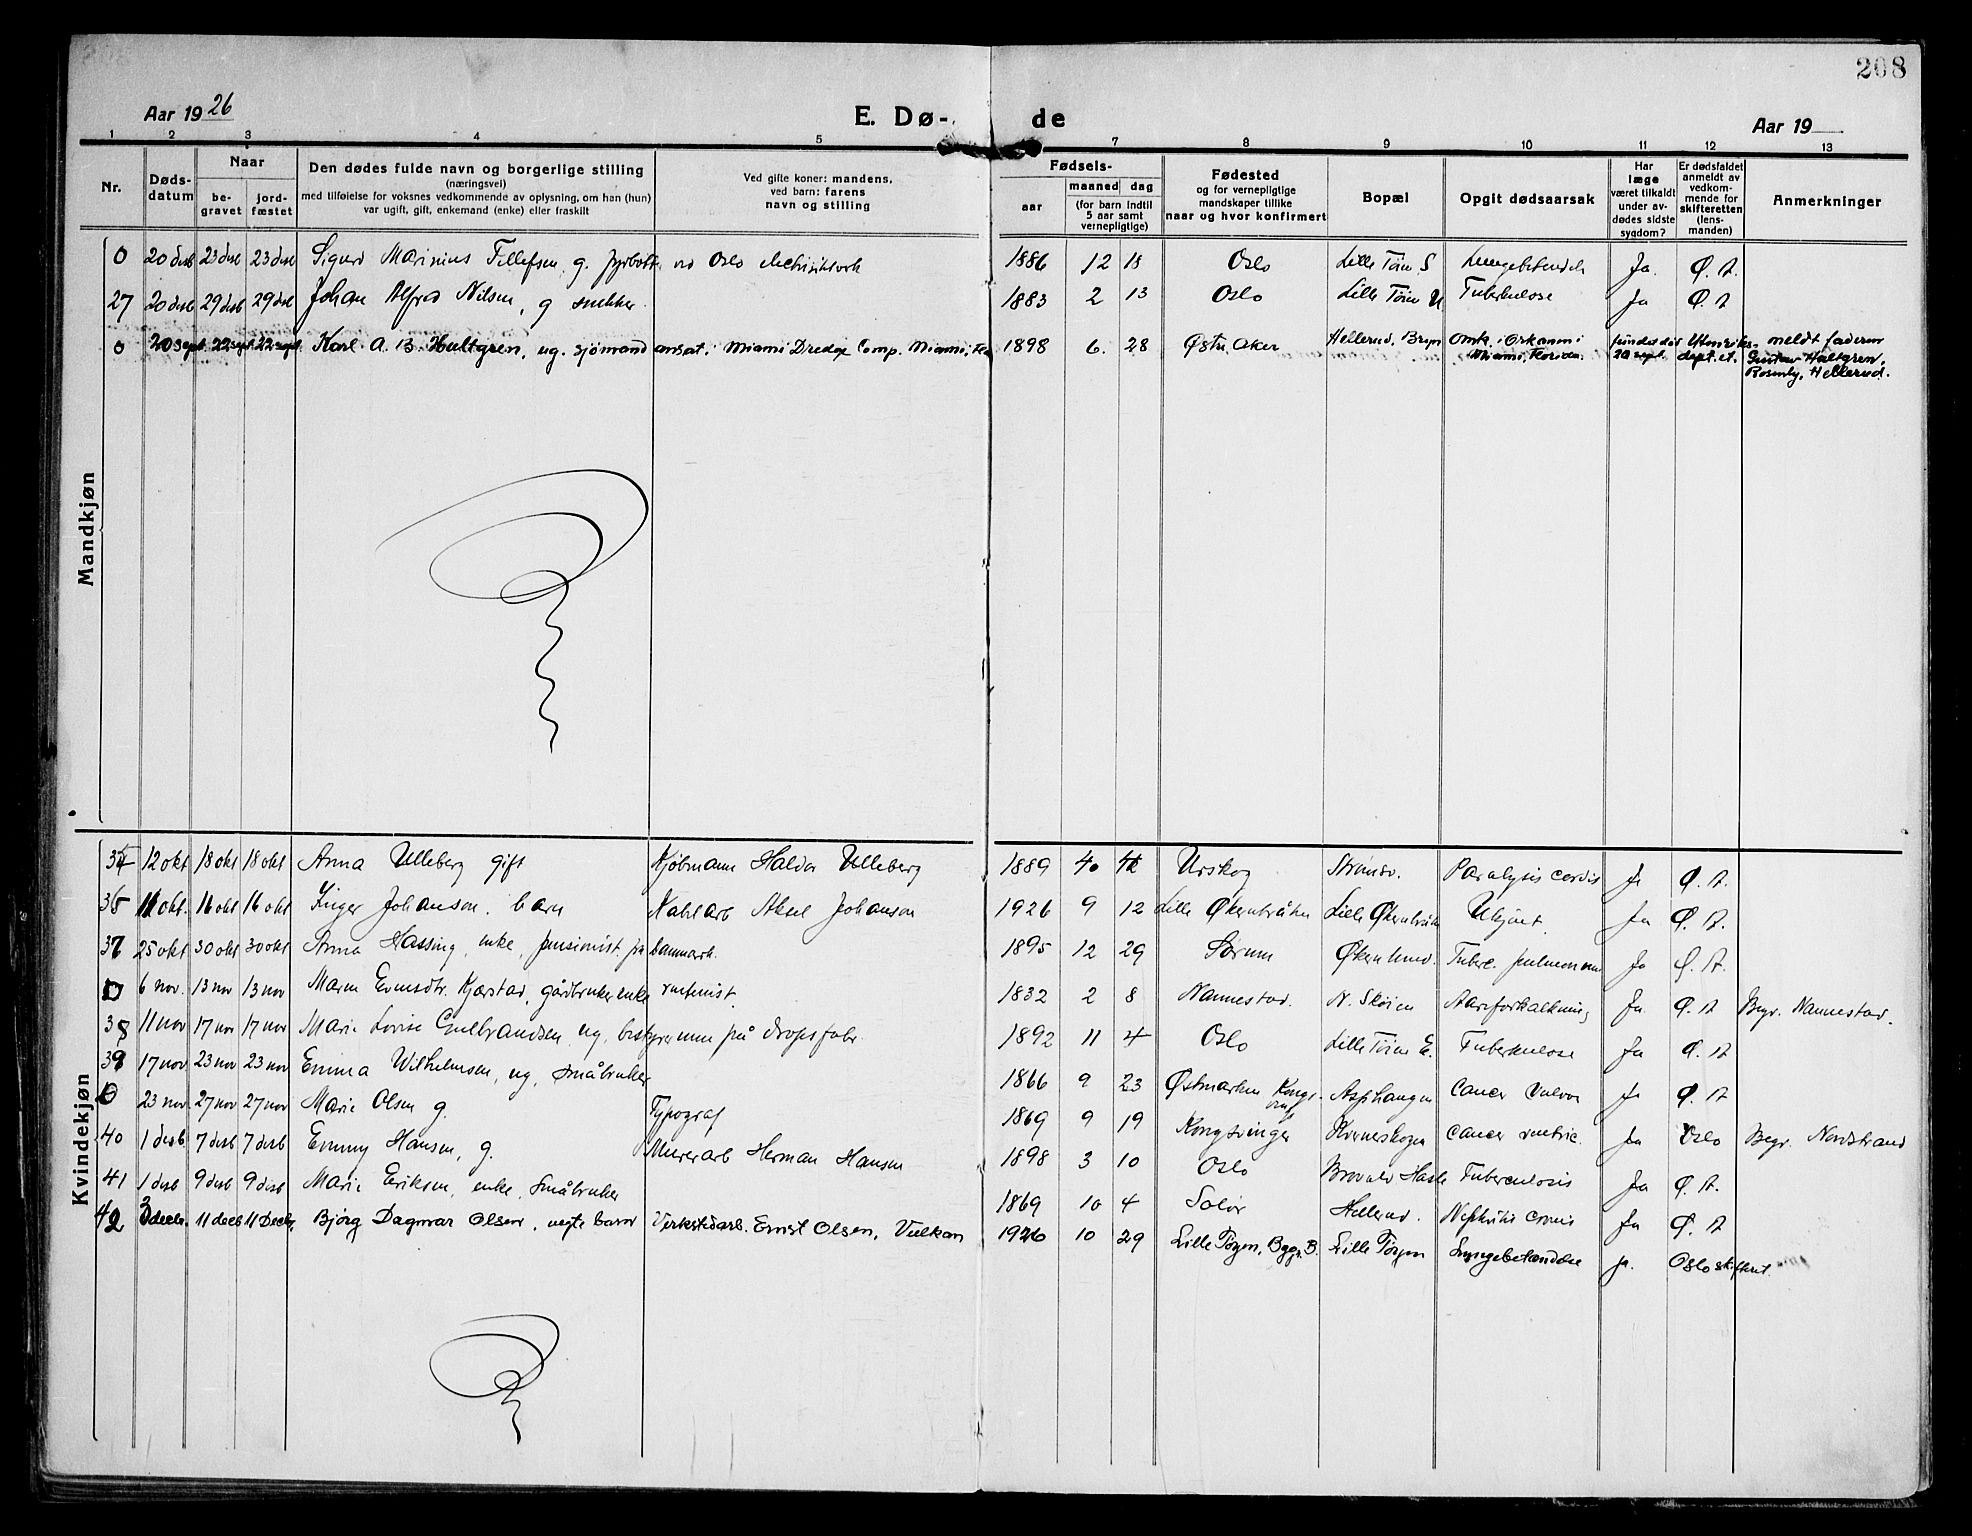 208
Aar 1926 E. Dø- de Aar 19
1 2 3 4 5 7 8 9 10 11 12 13
Nr. Døds-datum Naar be-gravet jord-fæstet Den dødes fulde navn og borgerlige stilling (næringsvei) med tilføielse for voksnes vedkommende av oplysning, om han (hun) var ugift, gift, enkemand (enke) eller fraskilt Ved gifte koner: mandens, ved barn: farens navn og stilling Fødsels- aar maaned dag (for barn indtil 5 aar samt vernepligtige) Fødested og for vernepligtige mandskaper tillike naar og hvor konfirmert Bopæl Opgit dødsaarsak Har læge været tilkaldt under av-dødes sidste sygdom? Er dødsfaldet anmeldt av vedkom-mende for skifteretten (lens-manden) Anmerkninger
Mandkjøn
0 20 desb 23 desb 23 desb Sigurd Marinius Tellefsen, g. fyrbøter ved Oslo electrisitetsverk 1886 12 18 Oslo Lille Tøien S Lungebetendelse Ja. Ø. A.
27 20 desb 29 desb 29 desb Johan Alfred Nilsen, g snekker 1883 2 13 Oslo Lille Tøien Tuberkulose Ja Ø. A
0 20 sept. 22 sept 22 sept Karl A. B. Hultgren, ug. sjömand ansat i Miami Dredge Comp. Miami, Fla 1898 6. 28 Østre Aker Hellerud, Bryn Omk. i Orkanen i Miami, Florida. fundet död 20 sept. Utenriks-dept. et. meldt faderen Gustav Hultgren, Rosenly, Hellerud.
Kvindekjøn
34 12 okt 18 okt 18 okt Anna Ulleberg gift Kjøbmann Haldor Ulleberg 1889 4 Urskog Strømsv. Paralysis cordis Ja Ø. A.
36 11 okt. 16 okt 16 okt Inger Johanson. barn Kabelarb Aksel Johanson 1926 9 12 Lille Økernbråten Lille Økernbråten Ukjent. Ja Ø. A.
37 25 okt 30 okt 30 okt Anna Hassing, enke, pensionist fra Danmark. 1895 12 29 Sørum Økern Tuberc. pulmonum Ja Ø. A.
0 6 nov. 13 nov 13 nov Maren Evensdtr. Kjærstad, gårdbrukerenke rentenist. 1832 2 8 Nannestad. N. Skøien Aareforkalkning Ja Ø. A Begr. Nannestad.
38 11 nov 17 nov 17 nov Marie Lovise Gulbrandsen ug, bestyrerinne på dropsfabr. 1892 11 4 Oslo Lille Tøien E. Tuberkulose Ja Ø. A
39 17 nov 23 nov 23 nov Emma Wilhelmsen, ug, småbruker 1866 9 23 Østmarken Kongs- Asphaugen Cancer Vulvae Ja Ø. A
0 23 nov. 27 nov 27 nov Marie Olsen g. Typograf 1869 9 19 Kongsvinger Kverneskogen Cancer ventric. Ja Oslo Begr. Nordstrand
40 1 desb 7 desb 7 desb Emmy Hansen, g. Murerarb Herman Hansen 1898 3 10 Oslo Brovold Hasle Tuberculosis Ja Ø. A.
41 1 desb 9 desb 9 desb Marie Eriksen, enke, småbruker 1869 10 4 Solør Hellerud. Ja Ø. A
42 3 decbr. 11 decb 11 Decbr, Bjørg Dagmar Olsen, ægte barn Verkstedarb. Ernst Olsen, Vulkan 1926 10 29 Lille Tøyen, Bygn. B. Lille Tøyen Lungebetændelse ja. Oslo skifteret